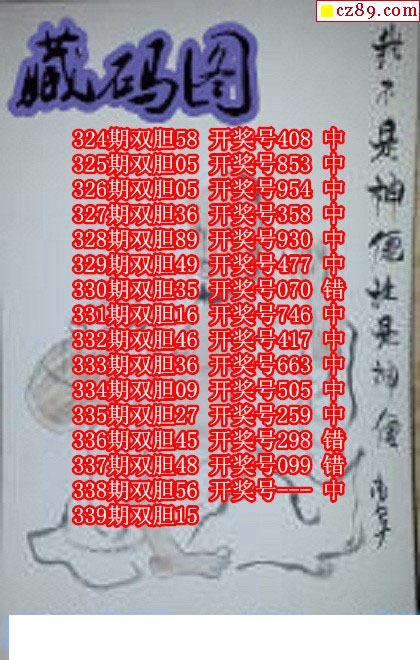 cz89.com
藏码图
324期双胆58 开奖号408 中
325期双胆05 开奖号853 中
326期双胆05 开奖号954 中
327期双胆36 开奖号358 中
328期双胆89 开奖号930 中
329期双胆49 开奖号477 中
330期双胆35 开奖号070 错
331期双胆16 开奖号746 中
332期双胆46 开奖号417 中
333期双胆36 开奖号663 中
334期双胆09 开奖号505 中
335期双胆27 开奖号259 中
336期双胆45 开奖号298 错
337期双胆48 开奖号099 错
338期双胆56 开奖号--- 中
339期双胆15
我不是神仙
是神仙